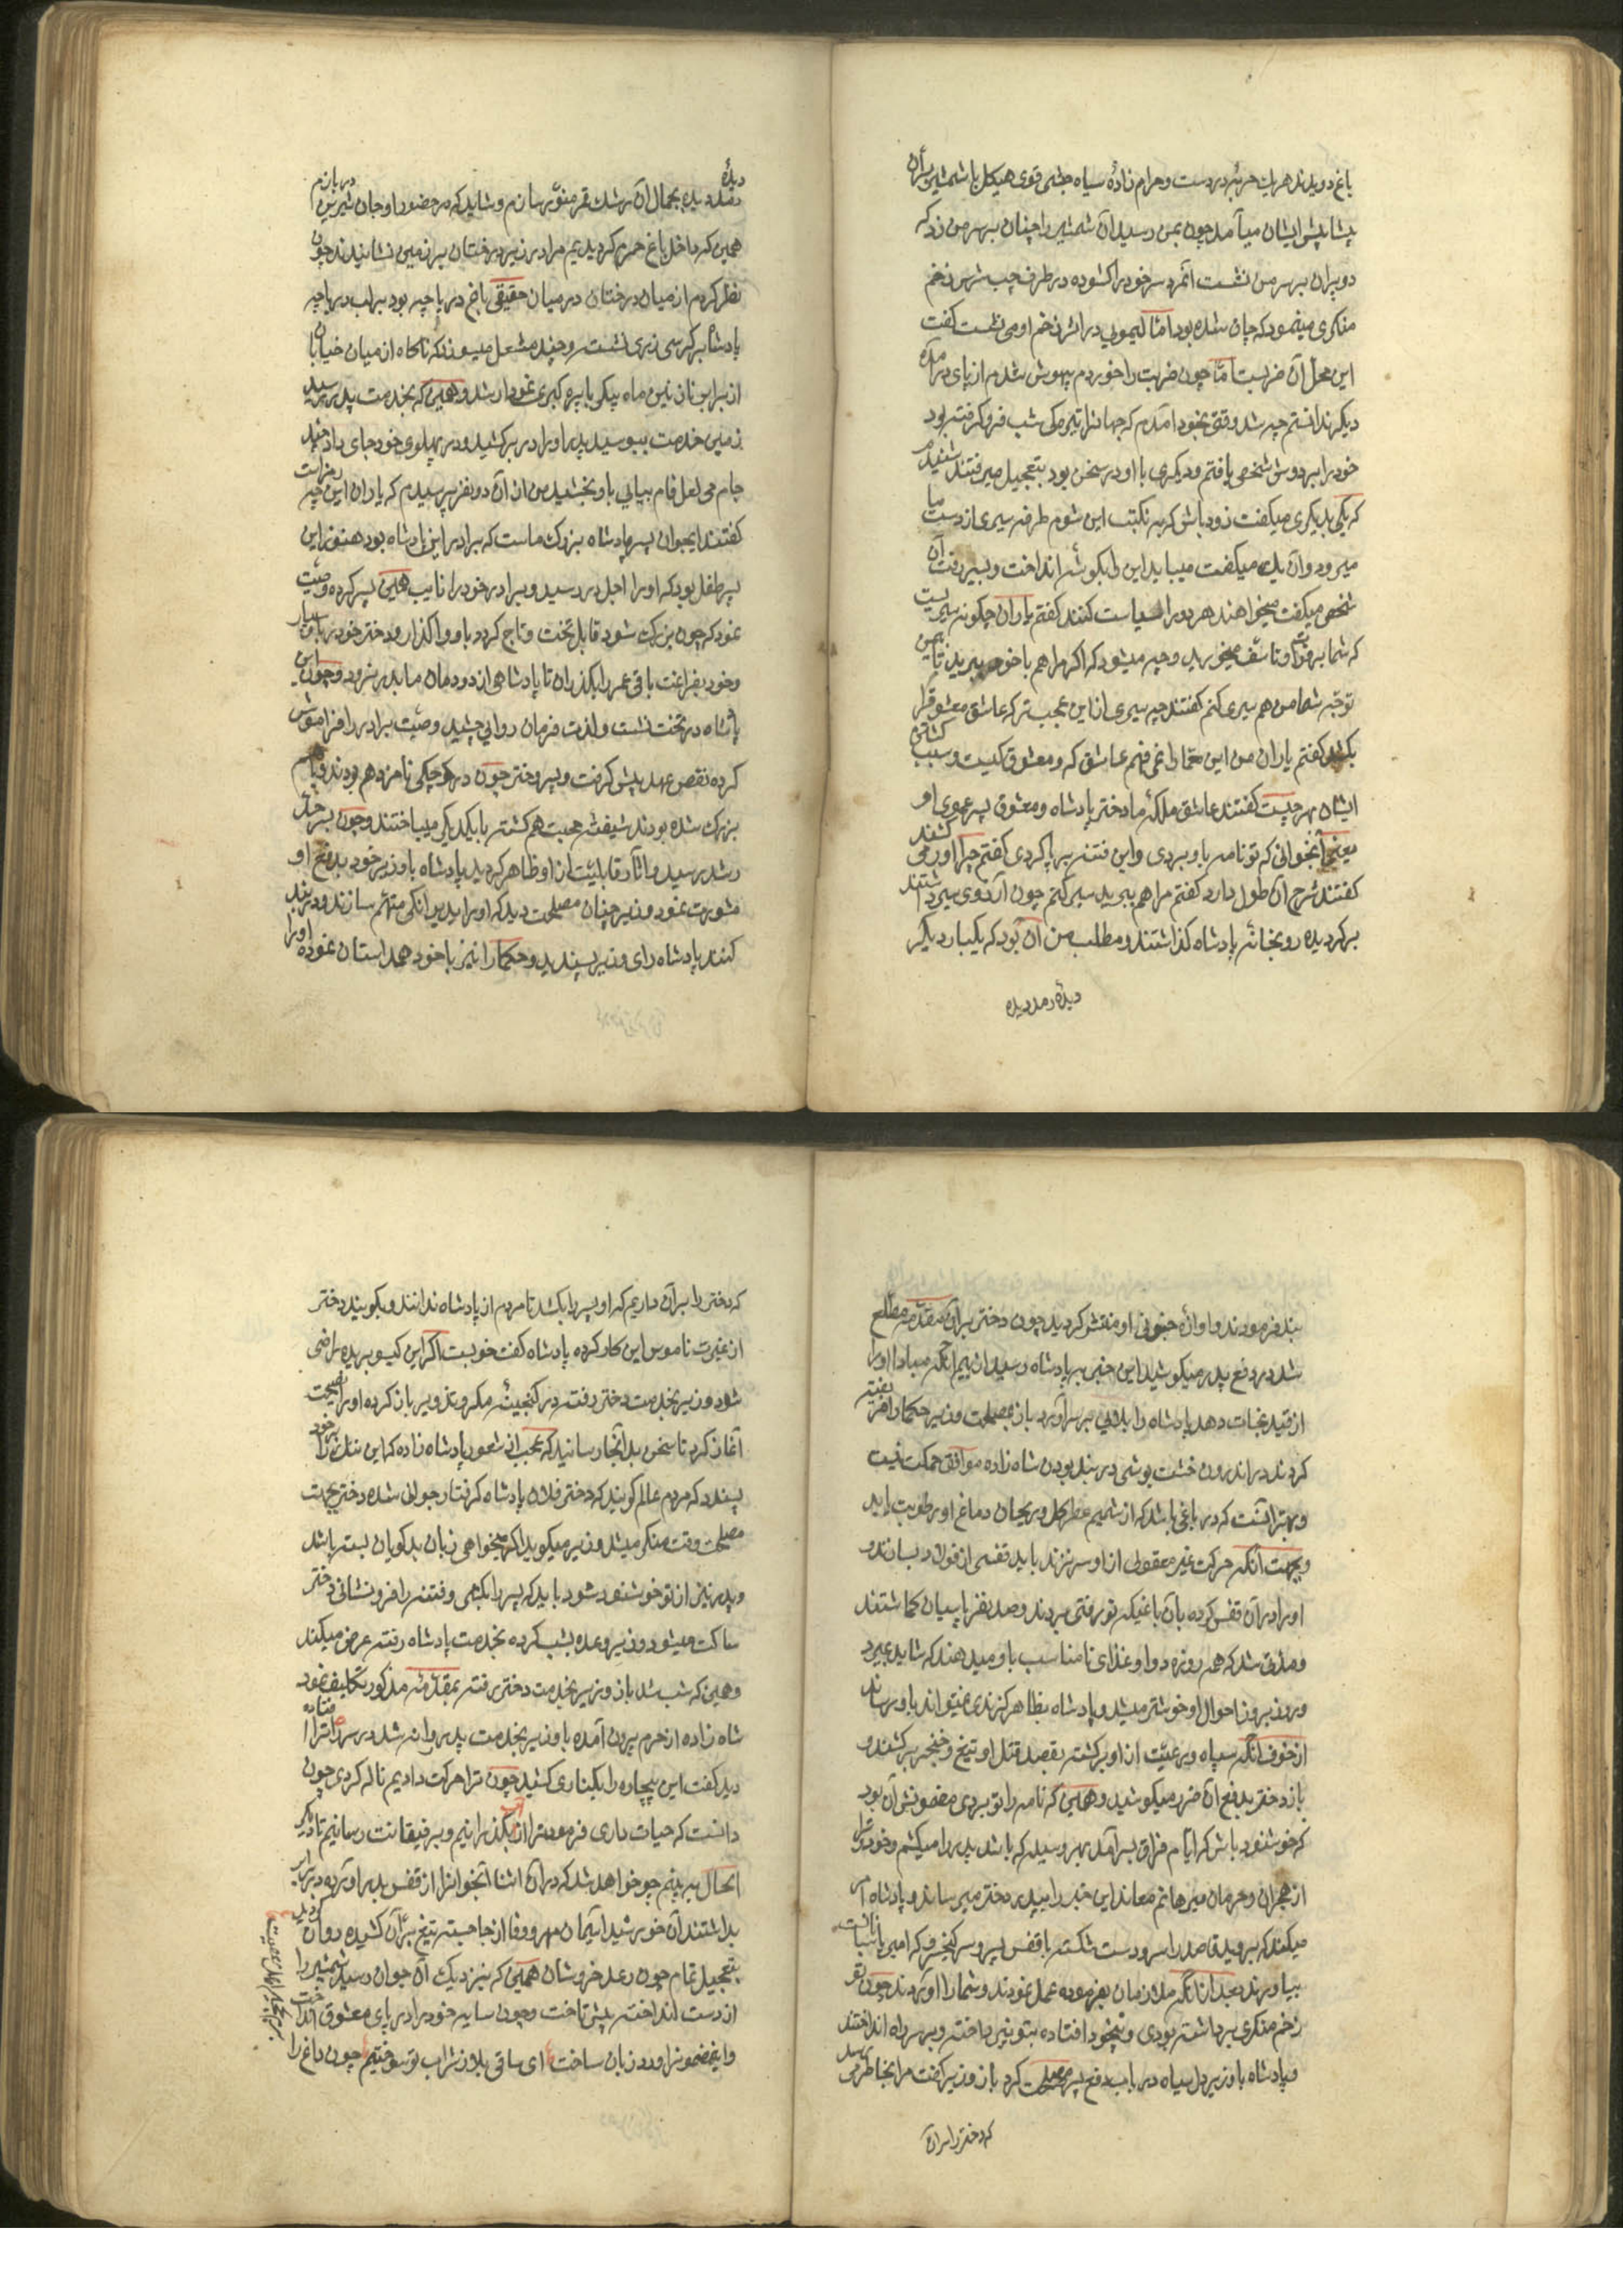 باغ دویدند هریک حربهٔ در دست و حرام زادهٔ سیاه چشمی قوی هیکل با شمشیر برّان
پیشاپیش ایشان میآمد چون بمن رسید آن شمشیر را چنان بر سر من زد که
دو پران بر سر من نشست انمرد سر خود را کشوده در طرف چپ سرش زخم
منکری مینمود که چاق شده بود امّا لیمویی در اثر زخم او می نشست گفت
این محل آن ضربست امّا چون ضربت را خوردم بیهوش شدم از پای درآمده
دیگر ندانستم چه شد وقتی بخود آمدم که جهانرا تیرگی شب فرو گرفته بود
خود را بر دوش شخصی یافتم و دیگری با او در سخن بود بتعجیل میرفتند شنیدم
که یکی بدیگری میگفت زود باش که به نکبت این شوم طرفه سیری از دست ما
میرود و آن یک میگفت میباید این را بگوشه انداخت و بسیر رفت آن
شخص میگفت میخواهند هر دو را سیاست کنند گفتم یاران چگونه سیریست
که شما بر فوتش تاسّف میخورید و چه میشود که اگر مرا هم با خود ببرید تا بیمن
توجّه شما من هم سیری کنم گفتند چه سیری از این عجب تر که عاشق معشوق را
بکشد گفتم یاران من این معمّا را نمی فهم عاشق که و معشوق کیست و سبب کشتن
ایشان بهر چیست گفتند عاشق ملکهٔ ما دختر پادشاه و معشوق پسر عموی او
یعنی آنجوانی که تو نامه باو بردی و این فتنه برپا کردی گفتم چرا او را می کشند
گفتند شرح آن طول دارد گفتم مرا هم ببرید سیر کنم چون آرزوی سیر داشتند
برگردیده رو بخانهٔ پادشاه گذاشتند و مطلب من آن بود که یکبار دیگر
دیدهٔ رمد دیده
دیدهٔ رمد دیده بجمال آن رشک قمر منوّر سازم و شاید که در حضور او جان شیرین دربازم
همین که داخل باغ حرم گردیدیم مرا در زیر درختان بر زمین نشانیدند چون
نظر کردم از میان درختان در میان حقیقی باغ دریاچه بود بر لب دریاچه
پادشاه بر کرسی زری نشسته و چند مشعل میسوزد که ناگاه از میان خیابان
از برابر نازنین ماه پیکری با پری نمودار شد و همین که بخدمت پدر رسید
زمین خدمت ببوسید پدر او را در بر کشید و در پهلوی خود جای داد چند
جام می لعل فام پیاپی باو بخشید من از آن دو نفر پرسیدم که یاران این چه
گفتند اینجوان پسر پادشاه بزرگ ماست که برادر این پادشاه بود هنوز این
پسر طفل بود که او را اجل در رسید و برادر خود را نایب همین پسر کرده وصیّت
نمود که چون بزرگ شود قابل تخت و تاج گردد باو واگذار و دختر خود را باو بسپار
و خود بفراغت باقی عمر را بگذران تا پادشاهی از دودمان ما بدر نرود و چون این
پادشاه در تخت نشست و لذت فرمان روایی چشید وصیّت برادر را فراموش
کرده نقص عهد پیش گرفت و پسر و دختر چون در کوچکی نامزد هم بودند و با هم
بزرگ شده بودند شیفتهٔ محبت هم گشته با یکدیگر میباختند و چون پسر بحد
رشد رسید و آثار قابلیّت از او ظاهر گردید پادشاه با وزیر خود بدفع او
مشورت نمود وزیر چنان مصلحت دید که او را بدیوانگی متهّم سازند و در بند
کنند پادشاه رای وزیر پسندید و حکما را نیز با خود همداستان نموده او را
بند فرمودند و اوازهٔ جنونی او منتشر گردید چون دختر بر آن مقدّمه مطّلع
شد در دفع پدر میکوشید این خبر به پادشاه رسید از بیم آنکه مبادا او را
از قید نجات دهد پادشاه را بلائی بر سر آورد باز بمصلحت وزیر حکما را فریفته
کردند در اندرون خشت پوشی در بند بودن شاه زاده موافق حکمت نیست
و بهتر آنست که در باغی باشد که از شمیم عطر گل و ریحان دماغ او رطوبت یابد
و بجهت آنکه حرکت غیر معقولی از او سر نزند باید قفسی از فولاد بسازند و
او را در آن قفس کرده بآن باغیکه تو رفتی بردند و صد نفر پاسبان گماشتند
و مدّتی شد که همه روزه دوا و غذای نامناسب باو میدهند که شاید بمیرد
و روز بروز احوال او خوشتر میشد و پادشاه بظاهر گزندی نمیتواند باو رساند
از خوف آنکه سپاه و رعیّت از او برگشته بقصد قتل او تیغ و خنجر برکشند و
باز دختر بدفع آن ضرر میکوشید و همین که نامه را تو بردی مضمونش آن بود
که خوشنود باش که ایّام فراق بسر آمد بهر وسیله که باشد پدر را میکشم و خود را
از هجران و حرمان میرهانم معاند این خبر را بپدر دختر میرساند و پادشاه امر
میکند که بروید قاصد را سر و دست شکسته با قفس پسر و سر کنیزک که امین
بیاورند بعد از آنکه ملازمان بفرموده عمل نمودند و شما را آوردند چون تو
زخم منکری برداشته بودی و بیخود افتاده بتو نپرداخته و بر سر راه انداختند
و پادشاه با وزیر دل سیاه در باب دفع پسر مصلحت کرد باز وزیر گفت مرا بخاطر می رسد
که دختر را بر آن
که دختر را بر آن داریم که او پسر را بکشد تا مردم از پادشاه ندانند و بگویند دختر
از غیرت ناموس این کار کرده پادشاه گفت خوبست اگر این گیسو بریده راضی
شود وزیر بخدمت دختر رفت در گنجینهٔ مکر و تزویر باز کرده او را نصیحت
آغاز کرد تا سخن بدآنجا رسانید که عجب از شعور پادشاه زاده که این ننک را بر خود
پسندد که مردم عالم گویند که دختر فلان پادشاه گرفتار جوانی شده دختر بجهت
مصلحت وقت منکر میشد وزیر میگوید اگر میخواهی زبان بدگویان بسته باشد
و پدر نیز از تو خوشنود شود باید که پسر را بکشی و فتنه را فرو نشانی دختر
ساکت میشود وزیر وعده بشب کرده بخدمت پادشاه رفته عرض میکند
و همین که شب شد باز وزیر بخدمت دختر رفته بمقدّمهٔ مذکور تکلیف نمود
شاه زاده از حرم بیرون آمده با وزیر بخدمت پدر روانه شد در سر راه ترا افتاده
دید گفت این بیچاره را بکناری کشید چون ترا حرکت دادیم ناله کردی چون
دانست که حیات داری فرمود ترا از آب بگذرانیم و برفیقانت رسانیم تا دیگر
الحال ببینیم چو خواهد شد که در آن اثنا آنجوانرا از قفس بدر آورده در برابر
بداشتند آن خورشید ایمان مهر و وفا از جا جسته تیغ برّان کشیده روان گردید
بتعجیل تمام چون رعد خروشان همین که بنزدیک آن جوان رسید شمشیر را
از دست انداخته پیش تاخت و چون سایه خود را در پای معشوق انداخت
و اینمضمونرا ورد زبان ساخت ای ساقی بلا ز شراب تو سوختیم چون داغ را